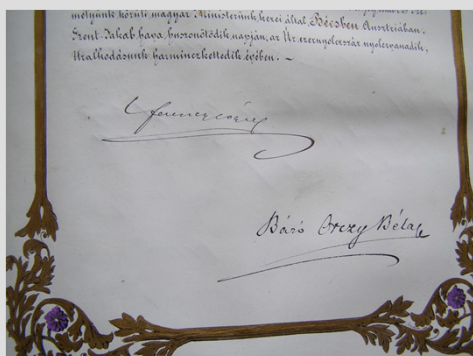 melyünk körüli magyar Ministerünk kezei által Bécsben Ausztriában,
Szent-Jakab hava huszonötödik napján, az Úr ezernyolcszáz nyolczvanadik,
Uralkodásunk harminczkettedik évében. —
Báró Orczy Béla